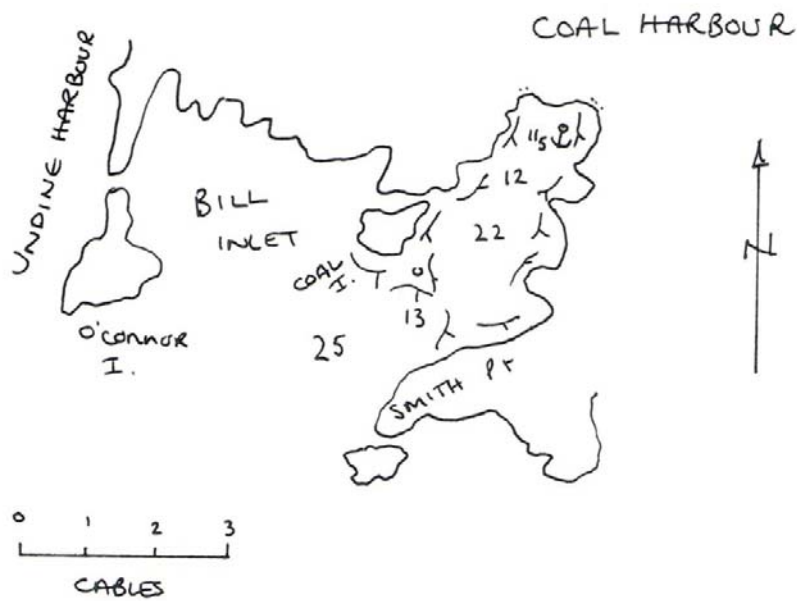 COAL HARBOUR
UNDINE HARBOUR
115
12
BILL
INLET
22
COAL
I.
13
O'CONNOR
I.
25
SMITH PT
N
0 1 2 3
CABLES